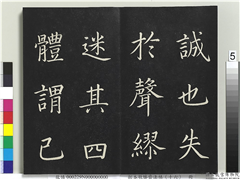 誠也失
於聲繆
迷其四
體謂已
5